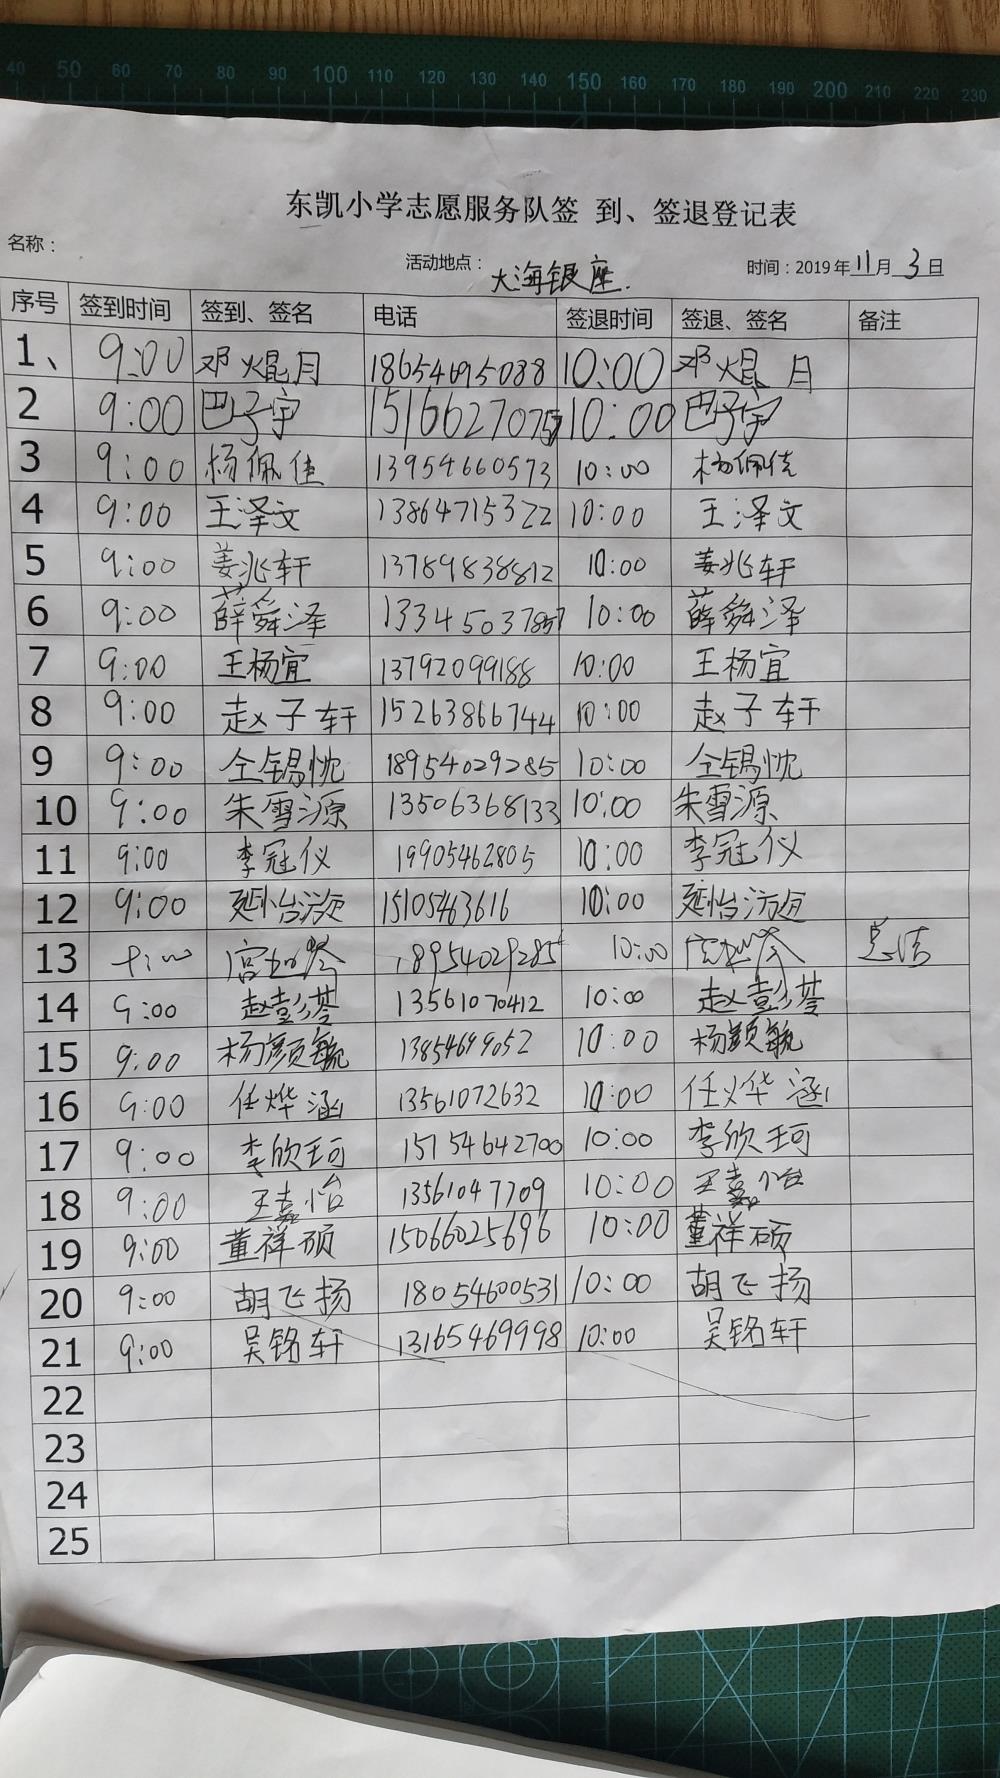 40 50 60 70 80 90 100 110 120 130 140 150 160 170 180 190 200 210 220 230
东凯小学志愿服务队签 到、签退登记表
名称： 活动地点：大海银座. 时间：2019年11月3日
序号 签到时间 签到、签名 电话 签退时间 签退、签名 备注
1、 9:00 邓焜月 18654695088 10:00 邓焜月
2 9:00 巴子宇 10:00 巴子宇
3 9:00 杨佩佳 13954660573 10:00 杨佩佳
4 9:00 王泽文 13864715322 10:00 王泽文
5 9:00 姜兆轩 13789838812 10:00 姜兆轩
6 9:00 薛舜泽 10:00 薛舜泽
7 9:00 王杨宜 13792099188 10:00 王杨宜
8 9:00 赵子轩 15263866744 10:00 赵子轩
9 9:00 仝锡忱 18954029285 10:00 仝锡忱
10 9:00 朱雪源 13506368133 10:00 朱雪源
11 9:00 李冠仪 19905462805 10:00 李冠仪
12 9:00 15105463616 10:00
13 18954029285 10:00 总结
14 9:00 赵彭荟 13561070412 10:00 赵彭荟
15 9:00 杨颜毓 13854699052 10:00 杨颜毓
16 9:00 任烨涵 13561072632 10:00 任烨涵
17 9:00 李欣珂 15154642700 10:00 李欣珂
18 9:00 王嘉怡 13561047709 10:00 王嘉怡
19 9:00 董祥硕 15066025696 10:00 董祥硕
20 9:00 胡飞扬 18054600531 10:00 胡飞扬
21 9:00 吴铭轩 13165469998 10:00 吴铭轩
22
23
24
25